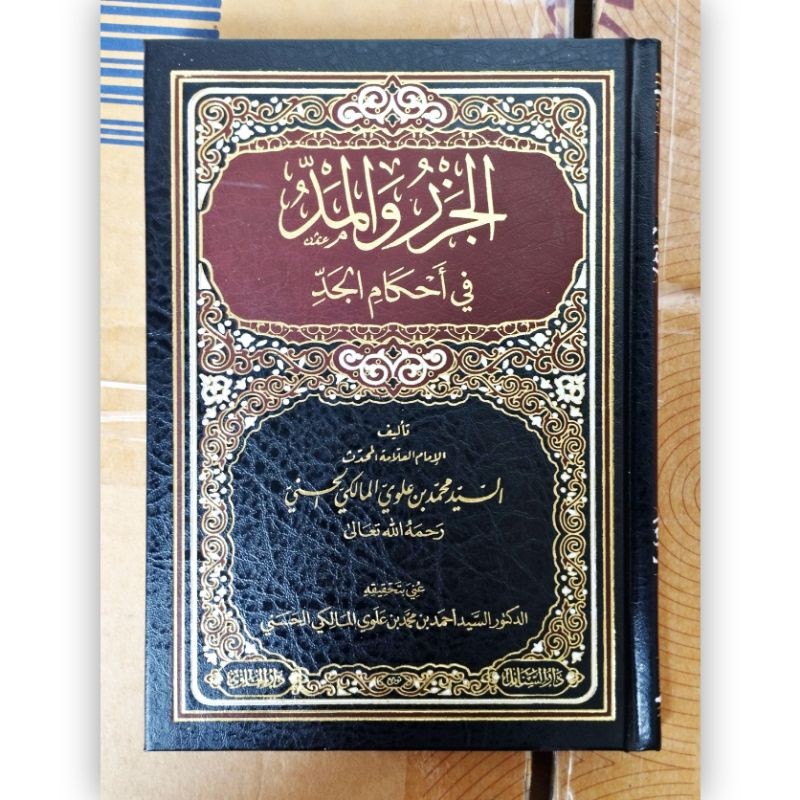 الجَزْرُ وَالمَدُّ
في أَحكَامِ الجَدِّ
تأليف
الإمام العلامة المحدث
السيّد محمد بن علوي المالكي الحسنيّ
رَحمَهُ الله تعَالىٰ
عُنيَ بتَحقِيقِهِ
الدكتور السيد أحمد بن محمد بن علوي المالكي الحسني
دار السنابل